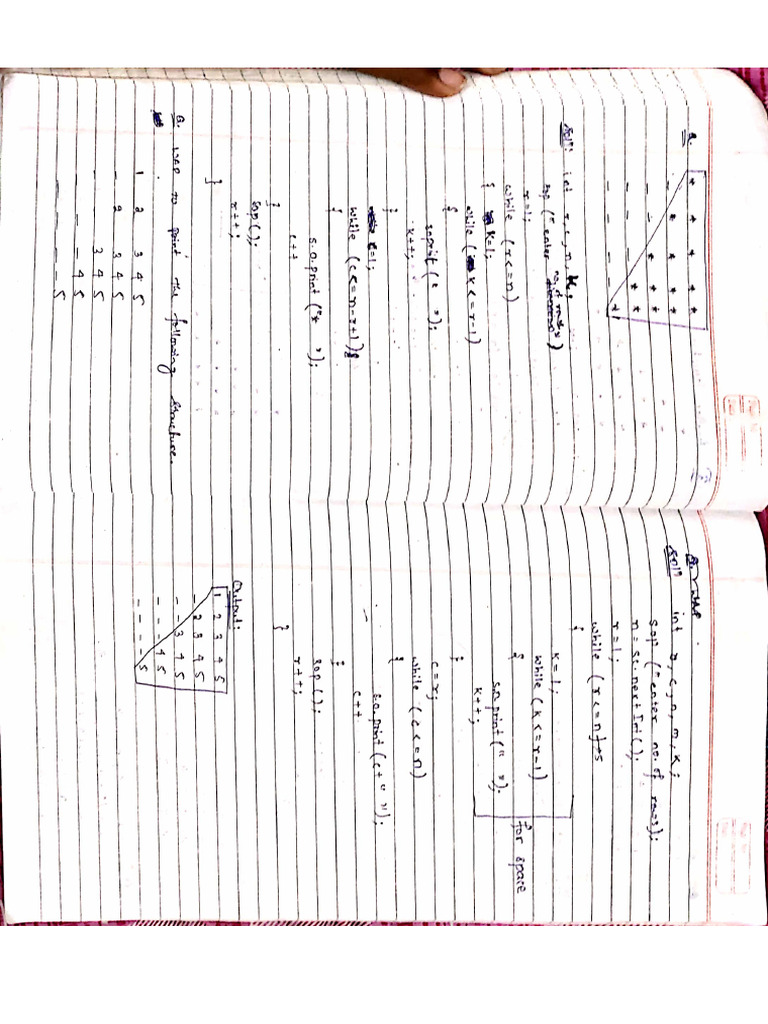 Q.
* * * * *
- * * * *
- - * * *
- - - * *
- - - - *
Solⁿ: int r, c, n, k;
sop ("enter no. of rows")
r=1;
while (r<=n)
{ k=1;
while (k<=r-1)
{
s.o.print(" ");
k++;
}
c=1;
while (c<=n-r+1){
{
s.o.print("* ");
c++
}
sop();
r++;
}
Q. WAP to print the following structure.
1 2 3 4 5
- 2 3 4 5
- - 3 4 5
- - - 4 5
- - - - 5
Q. WAP
Solⁿ int r, c, n, m, k;
Sop ("enter no. of rows);
n = sc.nextInt();
r=1;
while (r<=n)
{
k=1;
while (k<=r-1)
{
s.o.print(" ");
k++;
}
for space
c=r;
while (c<=n)
{
s.o.print(c+" ");
c++
}
sop();
r++;
}
Output:
1 2 3 4 5
- 2 3 4 5
- - 3 4 5
- - - 4 5
- - - - 5